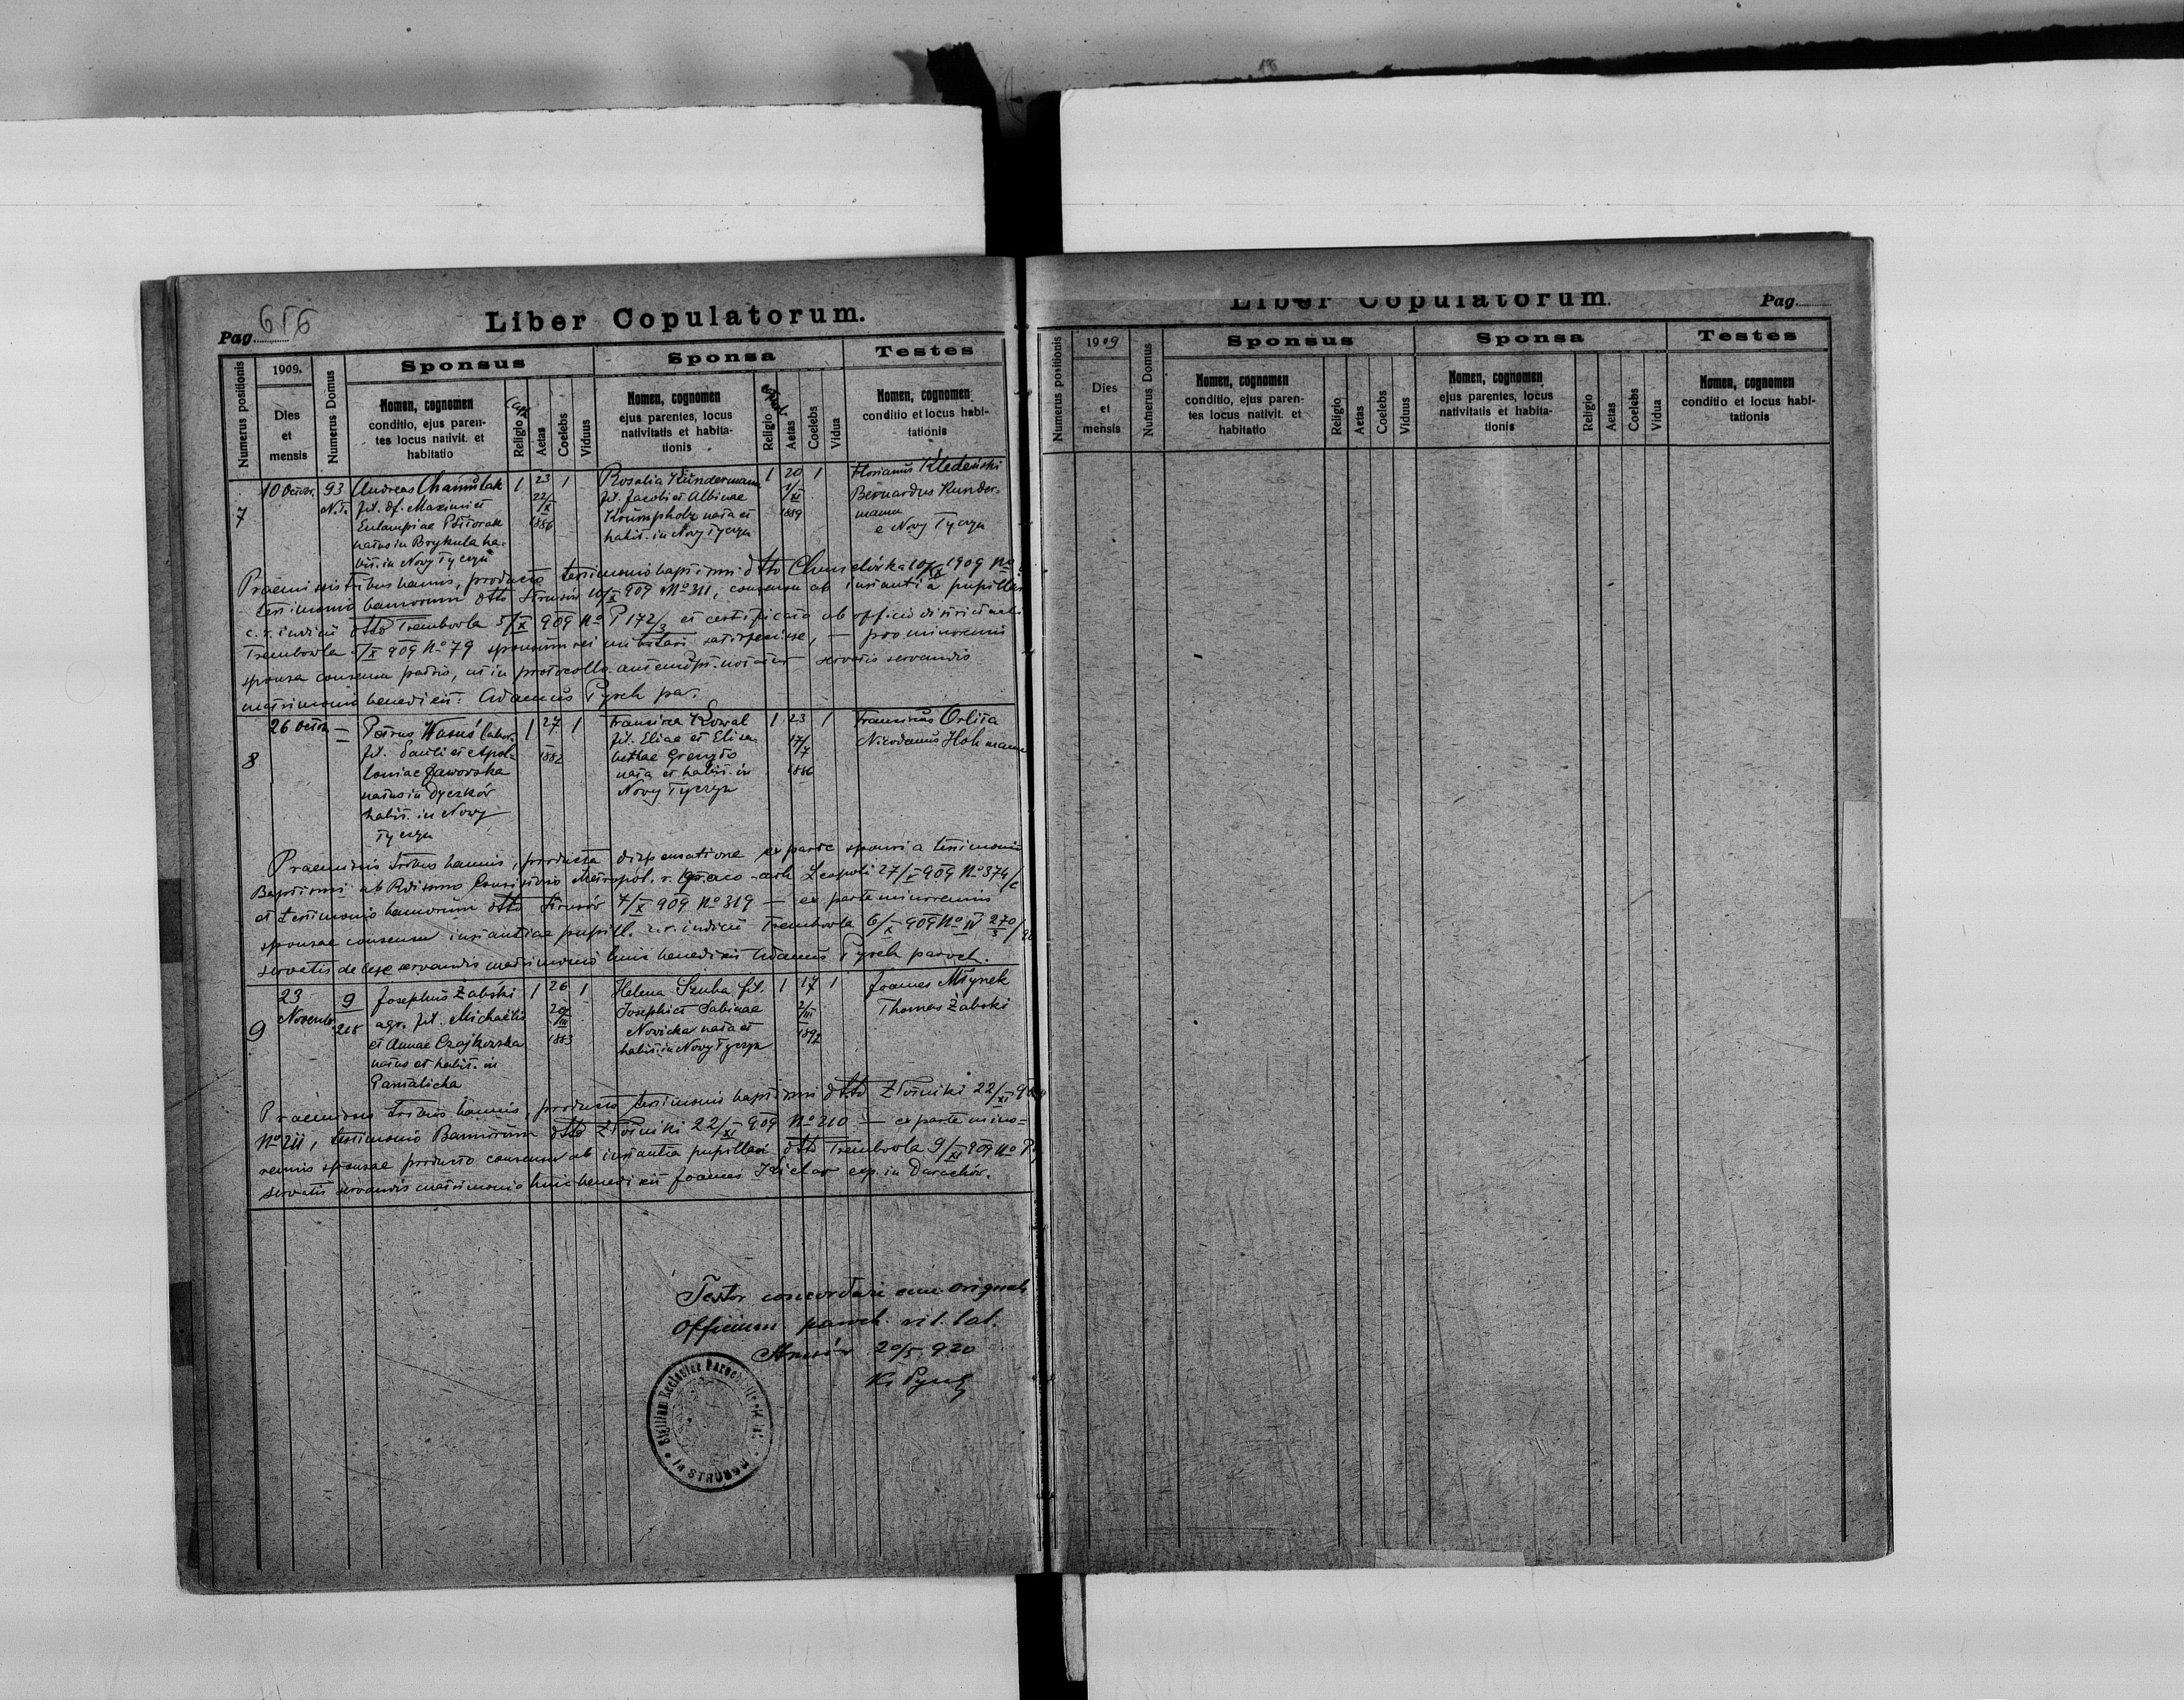 Pag. 656
Liber Copulatorum.
Numerus positionis
1909.
Dies
et
mensis
Numerus Domus
Sponsus
Nomen, cognomen
conditio, ejus paren-
tes locus nativit. et
habitatio
Religio
Aetas
Coelebs
Viduus
Sponsa
Nomen, cognomen
ejus parentes, locus
nativitatis et habita-
tionis
Religio
Aetas
Coelebs
Vidua
Testes
Nomen, cognomen
conditio et locus habi-
tationis
7
10 Octobr.
93
N.T.
Andreas Chamulak
fil. df. Maximi et
Eulampiae Półtorak
natus in Brykula ha-
bit. in Nowy Tyczyn
1
23
22/X
1886
1
Rosalia Kündermann
fil. Jacobi et Albinae
Krumpholz nata et
habit. in Nowy Tyczyn
1
20
1/XI
1889
1
Florianus Kledeński
Bernardus Kunder-
mann
e Nowy Tyczyn
Praemissis tribus bannis, producto testimonio baptismi dtto 10/X 1909 No
testimonio bannorum dtto Strusów 10/X 909 No 311, consensu ab instantia pupillari
c.r. iudicii dtto Trembowla 5/X 909 No P 172/3 et certificato ab officio
Trembowla /X 909 No 79 sponsum rei militari satisfecisse, — pro minorenni
sponsa consensu patris, ut in protocollo servatis servandis
matrimonio benedixit: Adamus Pyrch par.
8
26 Octob
—
Petrus Wasuś labor.
fil. Pauli et Apol-
loniae Jaworska
natus in Dyczków
habit. in Nowy
Tyczyn
1
27
1882
1
Francisca Kowal
fil. Eliae et Elisa-
bethae
nata et habit. in
Nowy Tyczyn
1
23
17/7
1886
1
Franciscus Orlita
Nicodemus Hohmann
Praemissis tribus bannis, producta dispensatione ex parte sponsi a testimonio
Baptismi ab Rdissimo Consistorio Metropol. r. graeco-cath Leopoli 27/X 909 No 374/c
et testimonio bannorum dtto Strusów 7/X 909 No 319 — ex parte minorennis
sponsae consensu instantiae pupill. c.r. iudicii Trembowla 6/X 909 No IV 270/3
servatis de lege servandis matrimonio huic benedixit Adamus Pyrch paroch.
9
23
Novemb.
9
218
Josephus Żabski
agr. fil. Michaelis
et Annae Czajkowska
natus et habit. in
Pantalicha
1
26
20/III
1883
1
Helena Szuba fil.
Josephi et Sabinae
Nowicka nata et
habit. in Nowy Tyczyn
1
17
2/III
1892
1
Joannes Młynek
Thomas Żabski
Praemissis tribus bannis, producto testimonio baptismi dtto Złotniki 22/XI 909
No 211, testimonio Bannorum dtto Złotniki 22/XI 909 No 210 — ex parte mino-
rennis sponsae producto consensu ab instantia pupillari dtto Trembowla 9/XI 909 No P
servatis servandis matrimonio huic benedixit Joannes exp. in Darachów.
Testor concordare cum originali
Officium paroch. rit. lat.
Strusów 20/5 920
Ks Pyrch
Sigillum Ecclesiae Parochialis rit. lat.
in STRUSÓW
Liber Copulatorum.
Pag.
Numerus positionis
1909
Dies
et
mensis
Numerus Domus
Sponsus
Nomen, cognomen
conditio, ejus paren-
tes locus nativit. et
habitatio
Religio
Aetas
Coelebs
Viduus
Sponsa
Nomen, cognomen
ejus parentes, locus
nativitatis et habita-
tionis
Religio
Aetas
Coelebs
Vidua
Testes
Nomen, cognomen
conditio et locus habi-
tationis